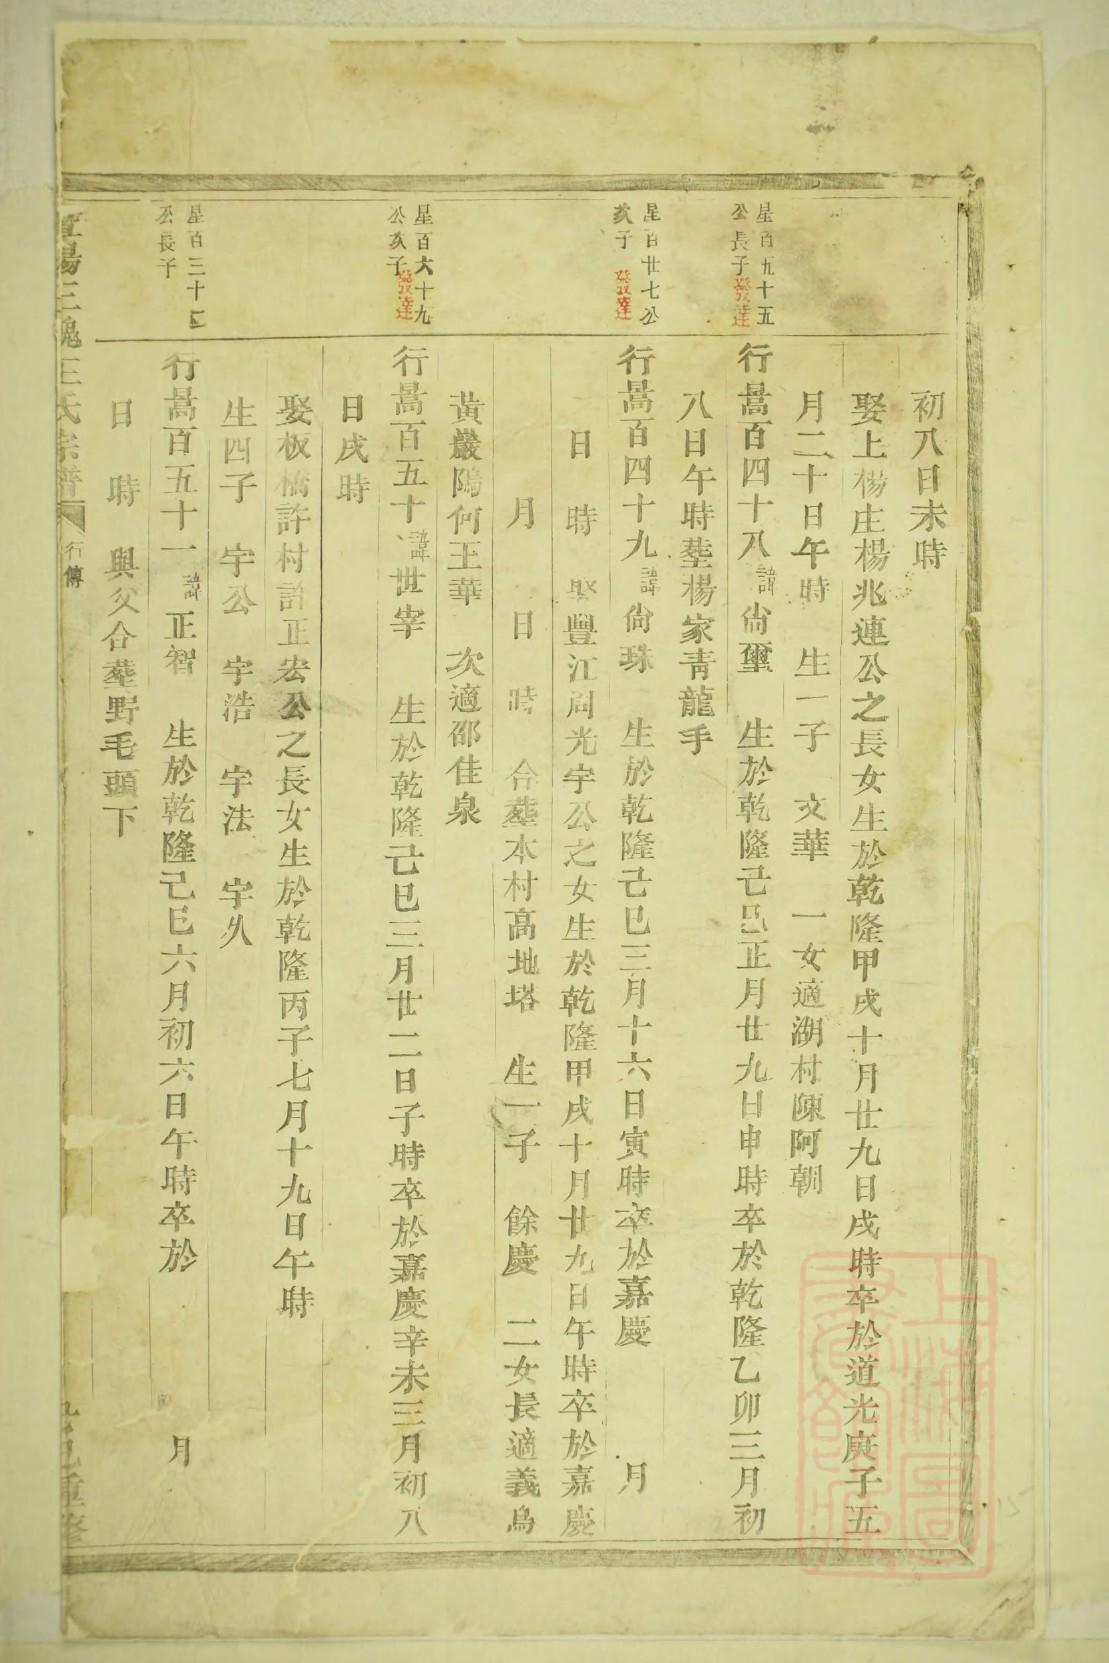 初八日未時
娶上楊庄楊兆連公之長女生於乾隆甲戌十月廿九日戌時卒於道光庚子五
月二十日午時　生一子　文華　一女適湖村陳阿朝
星百五十五
公長子發達
行暠百四十八諱尙璽　生於乾隆己巳正月廿九日申時卒於乾隆乙卯三月初
八日午時塟楊家靑龍手
星百廿七公
亥子　發達
行暠百四十九諱尙珠　生於乾隆己巳三月十六日寅時卒於嘉慶　　月
日　時　娶豐江周光宇公之女生於乾隆甲戌十月廿九日午時卒於嘉慶
月　日　時　合塟本村高地塔　生一子　餘慶　二女長適義烏
黃巖陽何王華　次適邵佳泉
星百六十九
公亥子發達
行暠百五十諱世宰　生於乾隆己巳三月廿二日子時卒於嘉慶辛未三月初八
日戌時
娶板橋許村許正宏公之長女生於乾隆丙子七月十九日午時
生四子　宇公　宇浩　宇法　宇久
星百三十五
公長子
行暠百五十一諱正智　生於乾隆己巳六月初六日午時卒於　　月
日　時　與父合塟野毛頭下
三槐王氏宗譜　行傳　己巳重修
上海圖書館藏